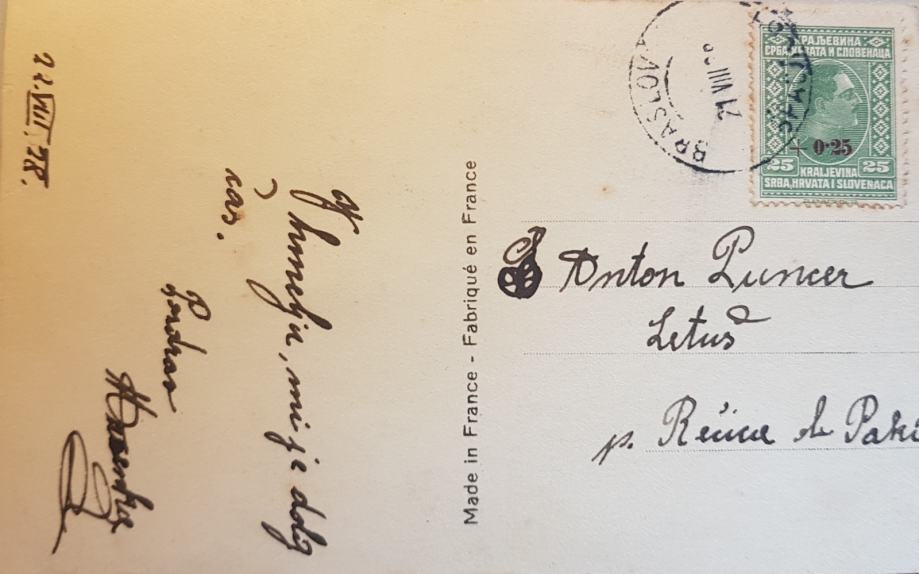 22.VIII.28.
V hmelju, mi je dolg
čas.
Pozdrav
Made in France - Fabriqué en France
BRASLOVČE
21 VIII 28
КРАЉЕВИНА
СРБА, ХРВАТА И СЛОВЕНАЦА
+ 0·25
25 25
KRALJEVINA
SRBA, HRVATA I SLOVENACA
Anton Puncer
Letuš
p. Rečica ob Paki